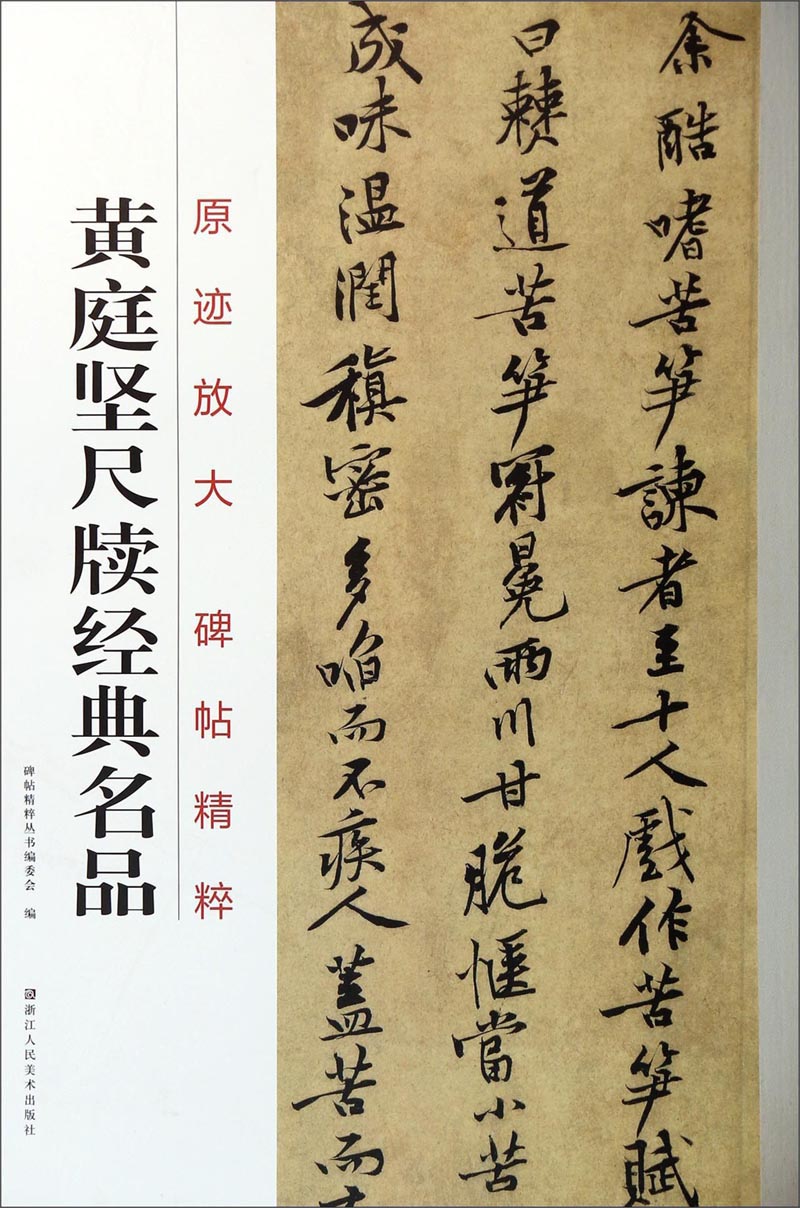 余酷嗜苦笋諫者至十人戲作苦笋賦
曰僰道苦笋冠冕兩川甘脆愜當小苦
成味温潤稹密多啗而不疾人蓋苦而
原迹放大 碑帖精粹
黄庭坚尺牍经典名品
碑帖精粹丛书编委会 编
浙江人民美术出版社